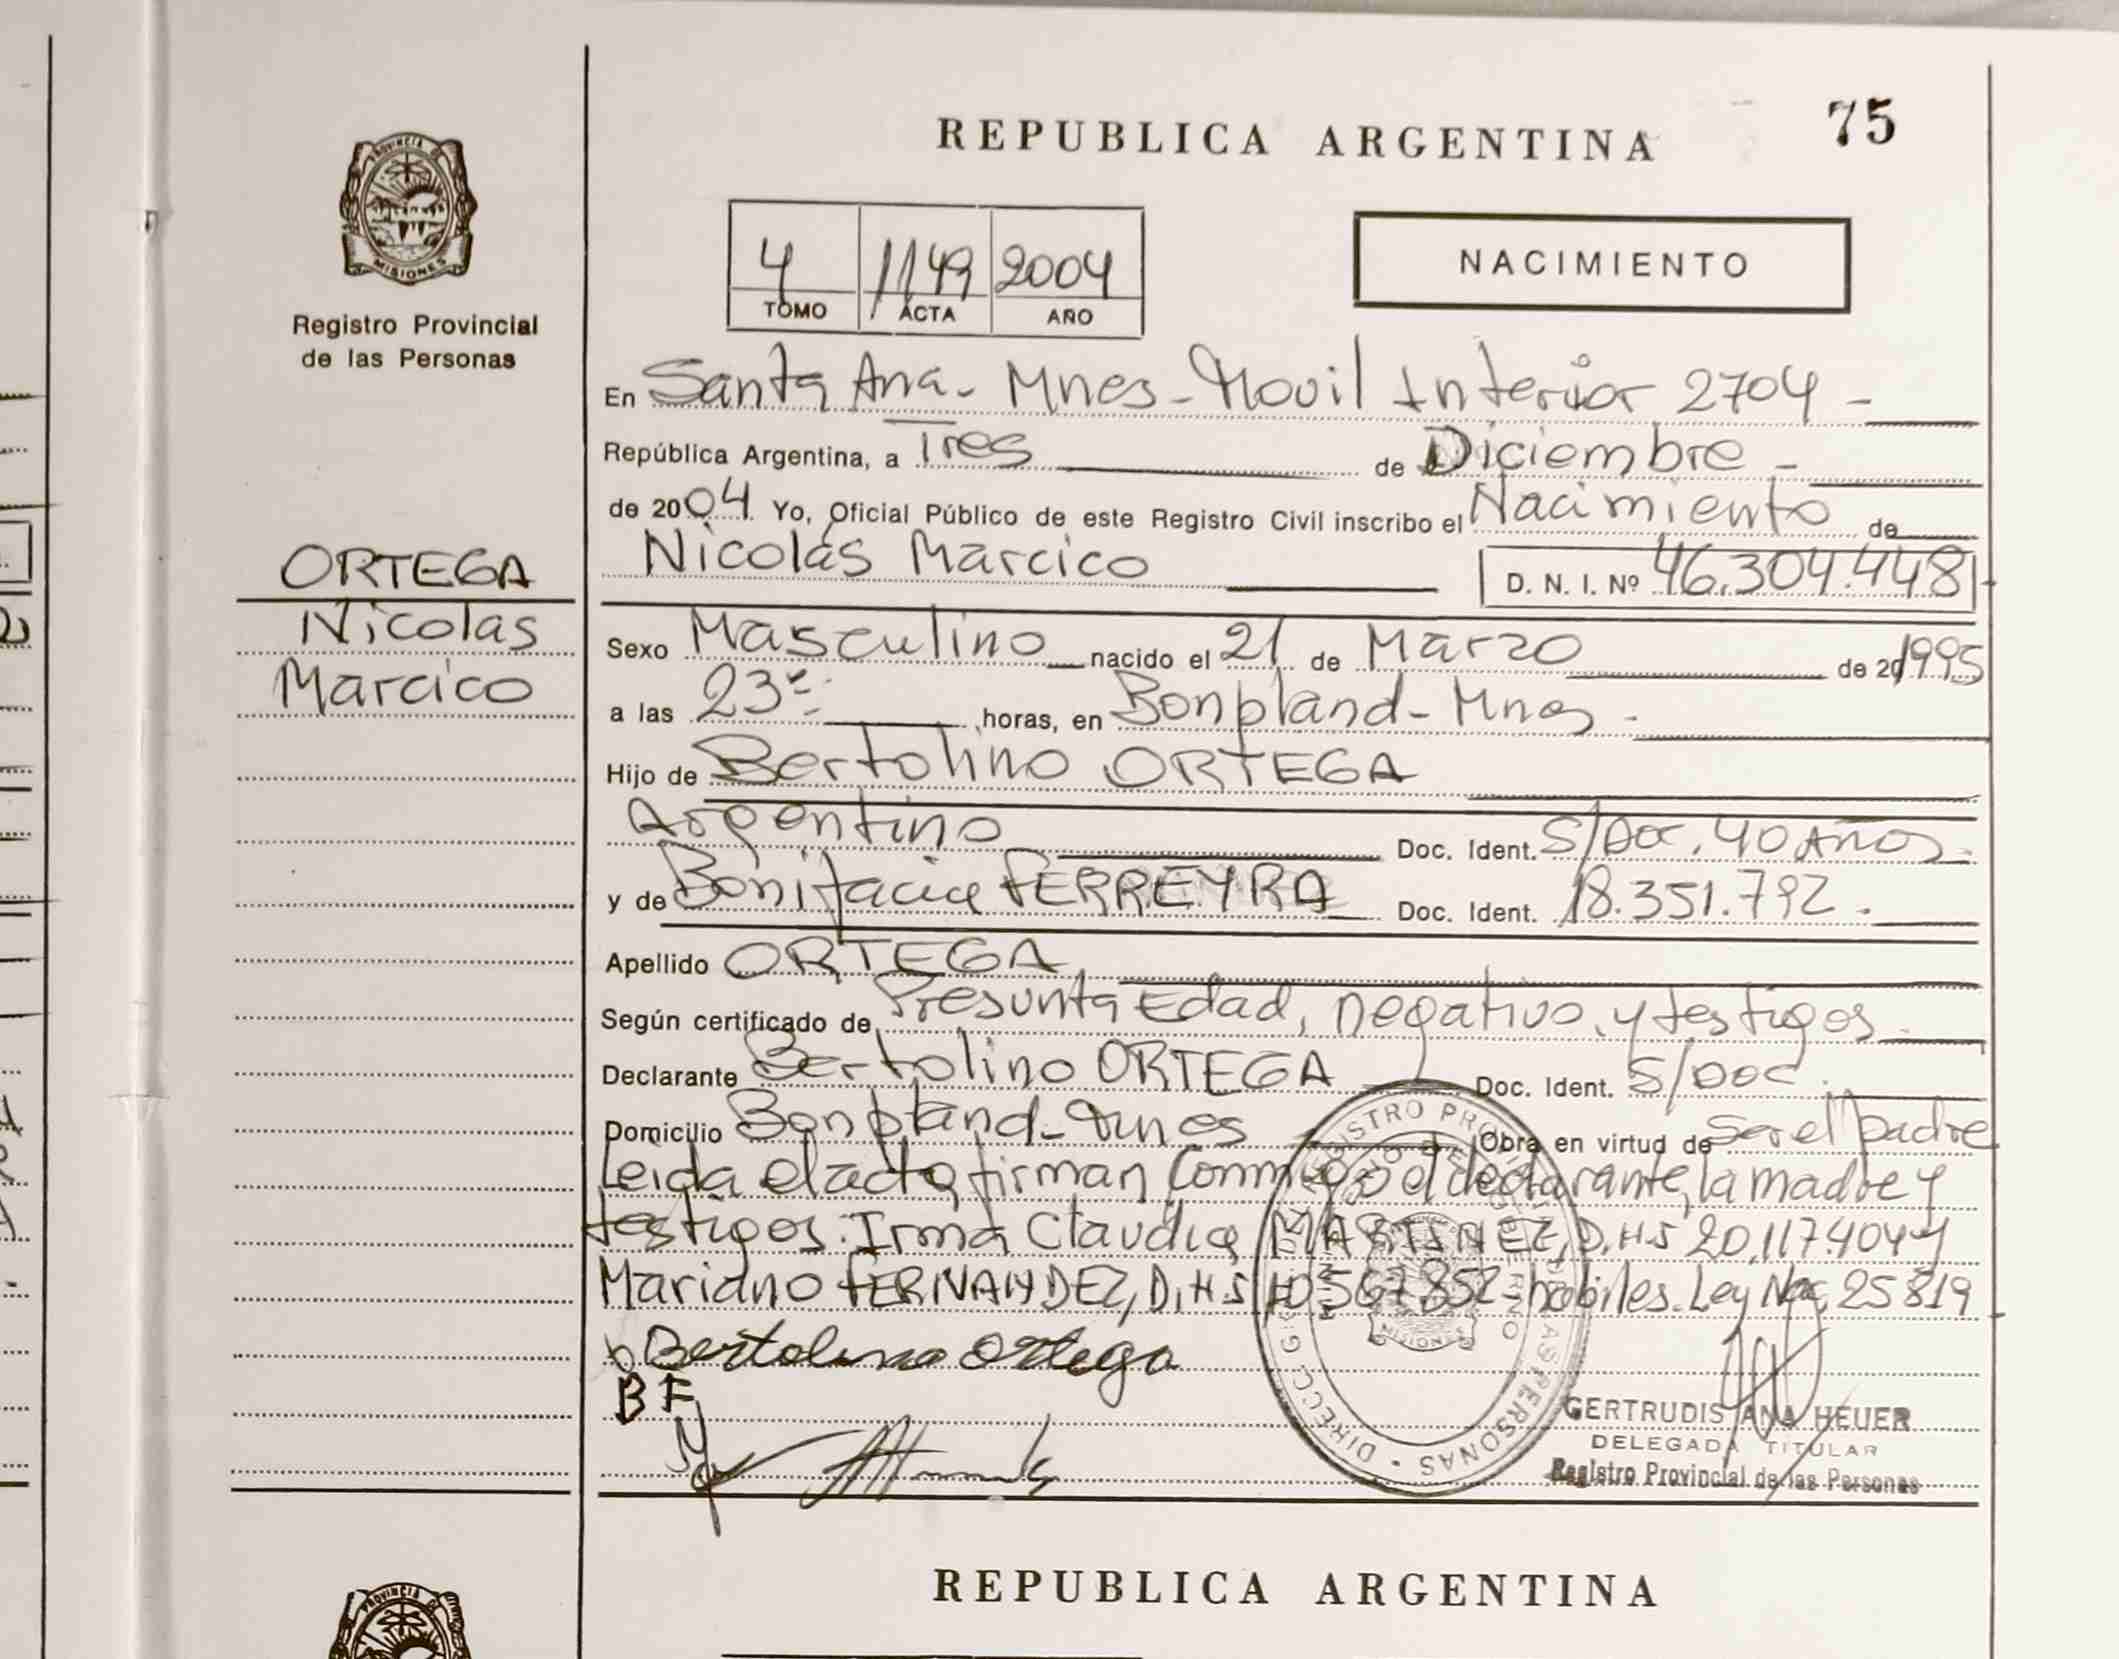 75
REPUBLICA ARGENTINA
PROVINCIA DE
MISIONES
Registro Provincial
de las Personas
4 1149 2004
TOMO ACTA AÑO
NACIMIENTO
En Santa Ana - Mnes - Movil Interior 2704 -
República Argentina, a Tres de Diciembre -
de 2004. Yo, Oficial Público de este Registro Civil inscribo el Nacimiento de
Nicolás Marcico D. N. I. Nº 46.304.448
ORTEGA
Nicolas
Marcico
Sexo Masculino nacido el 21 de Marzo de 20 1995
a las 23 horas, en Bonpland - Mnes -
Hijo de Bertolino ORTEGA
Argentino Doc. Ident. S/Doc. 40 Años.
y de Bonifacia FERREYRA Doc. Ident. 18.351.792.
Apellido ORTEGA
Según certificado de Presunta Edad, negativo, y testigos.
Declarante Bertolino ORTEGA Doc. Ident. S/Doc.
Domicilio Bonpland - Mnes Obra en virtud de Ser el padre
Leida el acta, firman Conmigo el declarante, la madre y
testigos: Irma Claudia MARTINEZ, D.N.I 20.117.404 y
Mariano FERNANDEZ, D.N.I 10.567.852 - habiles. Ley Nac. 25819.
Bertolino Ortega
B F
GERTRUDIS ANA HEUER
DELEGADA TITULAR
Registro Provincial de las Personas
REPUBLICA ARGENTINA
PROVINCIA